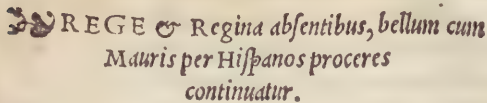 REGE & Regina abſentibus, bellum cum
Mauris per Hiſpanos proceres
continuatur.